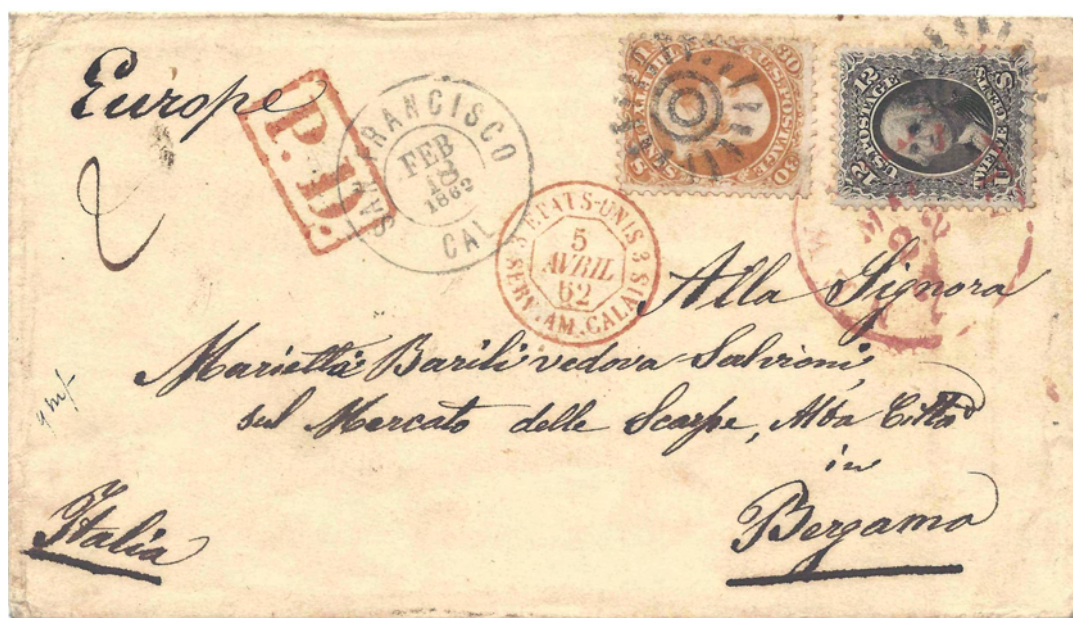 Europe
P.D.
SAN FRANCISCO
FEB
18
1862
CAL
3 ETATS-UNIS 3
5
AVRIL
62
SERV. AM. CALAIS
30 U.S. POSTAGE 30
12 U.S. POSTAGE 12
TWELVE CENTS
U S
Alla Signora
Marietta Barili vedova Salvioni,
sul Mercato delle Scarpe, Alta Città
in
Bergamo
Italia